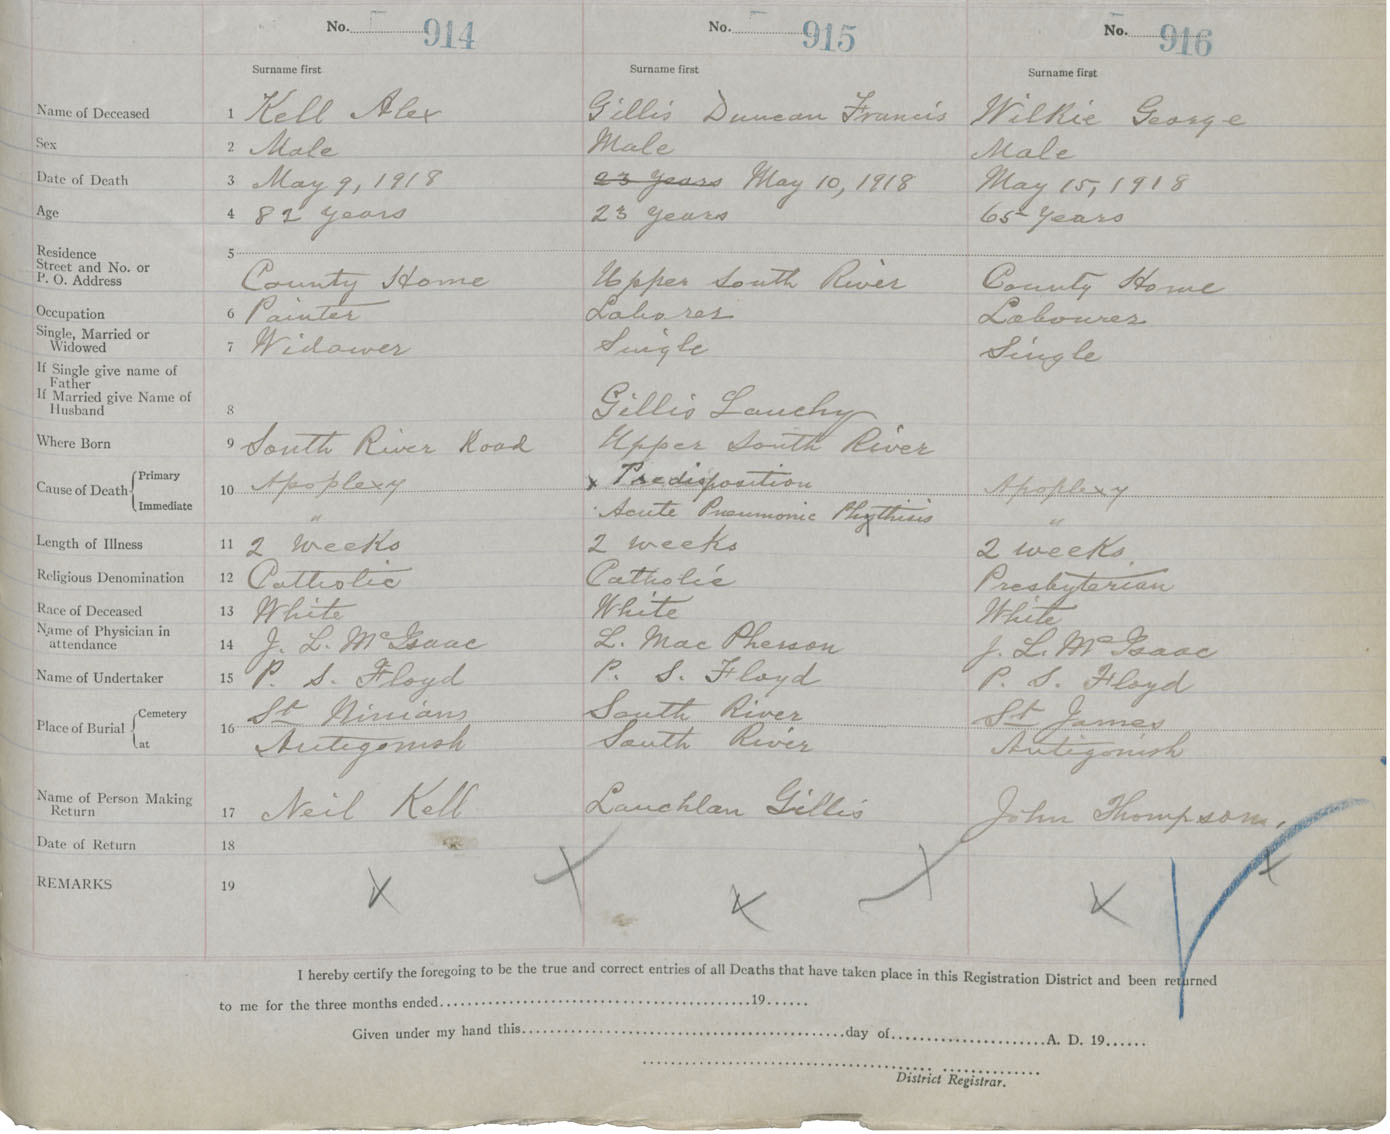 No. 914 No. 915 No. 916
Surname first Surname first Surname first
Name of Deceased 1 Kell Alex Gillis Duncan Francis Wilkie George
Sex 2 Male Male Male
Date of Death 3 May 9, 1918 23 Years May 10, 1918 May 15, 1918
Age 4 82 Years 23 Years 65 Years
Residence 5
Street and No. or
P. O. Address County Home Upper South River County Home
Occupation 6 Painter Laborer Labourer
Single, Married or
Widowed 7 Widower Single Single
If Single give name of
Father
If Married give Name of
Husband 8 Gillis Lauchy
Where Born 9 South River Road Upper South River
Cause of Death Primary 10 Apoplexy x Predisposition Apoplexy
Immediate " Acute Pneumonic Phythisis "
Length of Illness 11 2 weeks 2 weeks 2 weeks
Religious Denomination 12 Catholic Catholic Presbyterian
Race of Deceased 13 White White White
Name of Physician in
attendance 14 J. L. McIsaac L. MacPherson J. L. McIsaac
Name of Undertaker 15 P. S. Floyd P. S. Floyd P. S. Floyd
Place of Burial Cemetery 16 St Ninians South River St James
at Antigonish South River Antigonish
Name of Person Making
Return 17 Neil Kell Lauchlan Gillis John Thompson.
Date of Return 18
REMARKS 19
I hereby certify the foregoing to be the true and correct entries of all Deaths that have taken place in this Registration District and been returned
to me for the three months ended 19
Given under my hand this day of A. D. 19
District Registrar.